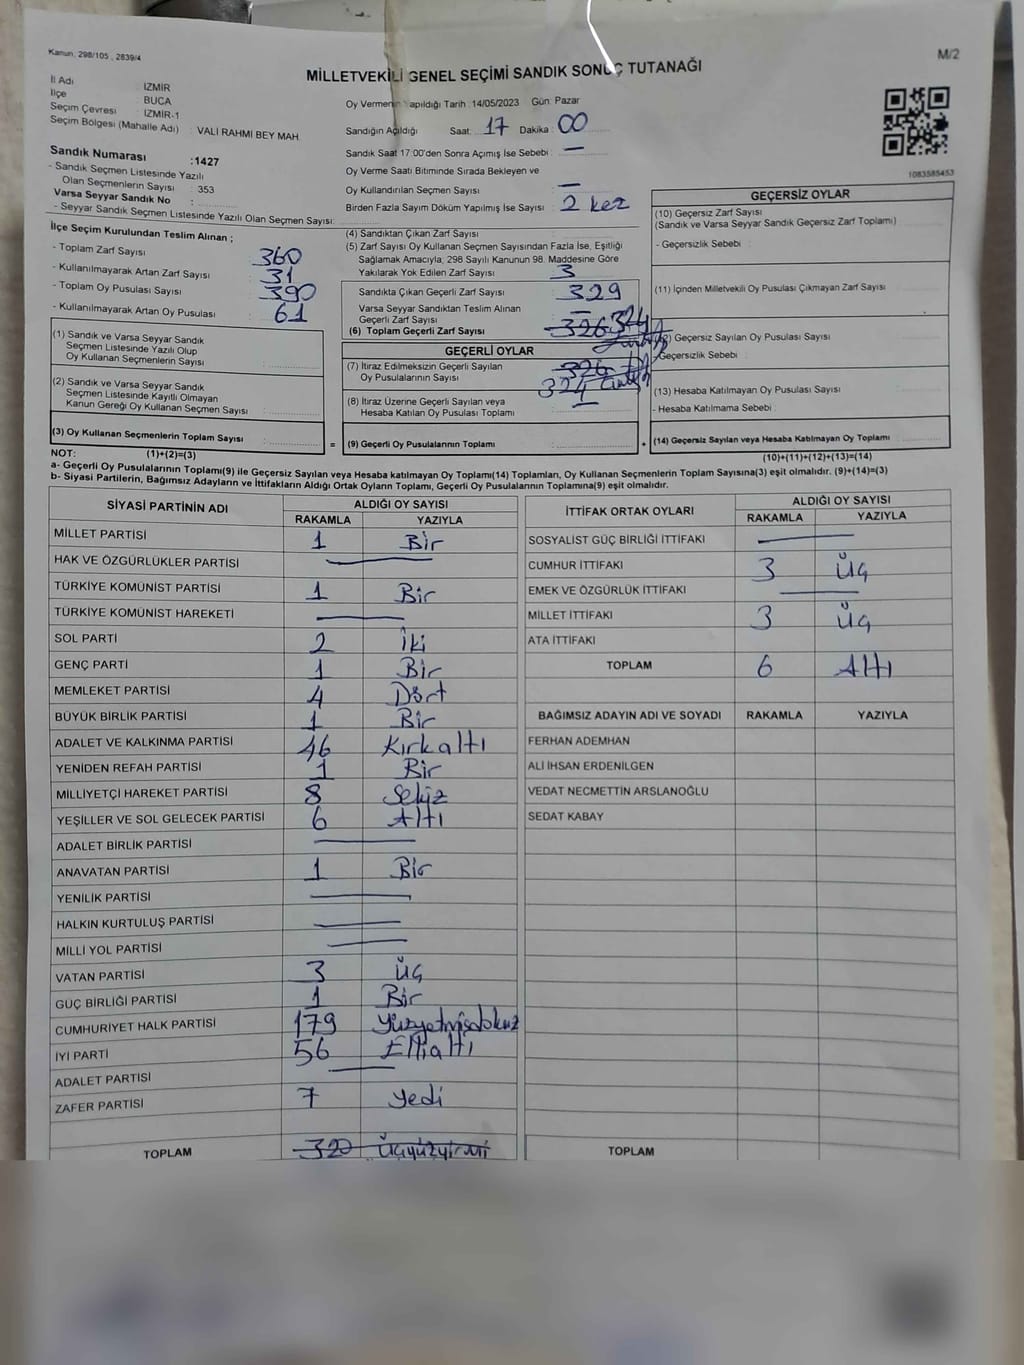 Kanun: 298/105 , 2839/4
M/2
MİLLETVEKİLİ GENEL SEÇİMİ SANDIK SONUÇ TUTANAĞI
İl Adı İZMİR
İlçe BUCA
Seçim Çevresi İZMİR-1
Seçim Bölgesi (Mahalle Adı) : VALİ RAHMİ BEY MAH.
Sandık Numarası :1427
- Sandık Seçmen Listesinde Yazılı
Olan Seçmenlerin Sayısı : 353
Varsa Seyyar Sandık No :
- Seyyar Sandık Seçmen Listesinde Yazılı Olan Seçmen Sayısı:
Oy Vermenin Yapıldığı Tarih :14/05/2023 Gün: Pazar
Sandığın Açıldığı Saat: 17 Dakika: 00
Sandık Saat 17:00'den Sonra Açımış İse Sebebi : —
Oy Verme Saati Bitiminde Sırada Bekleyen ve
Oy Kullandırılan Seçmen Sayısı : —
Birden Fazla Sayım Döküm Yapılmış İse Sayısı : 2 kez
1083585453
İlçe Seçim Kurulundan Teslim Alınan ;
- Toplam Zarf Sayısı : 360
- Kullanılmayarak Artan Zarf Sayısı : 31
- Toplam Oy Pusulası Sayısı : 390
- Kullanılmayarak Artan Oy Pusulası : 61
(1) Sandık ve Varsa Seyyar Sandık
Seçmen Listesinde Yazılı Olup
Oy Kullanan Seçmenlerin Sayısı :
(2) Sandık ve Varsa Seyyar Sandık
Seçmen Listesinde Kayıtlı Olmayan
Kanun Gereği Oy Kullanan Seçmen Sayısı :
(3) Oy Kullanan Seçmenlerin Toplam Sayısı :
(1)+(2)=(3)
(4) Sandıktan Çıkan Zarf Sayısı :
(5) Zarf Sayısı Oy Kullanan Seçmen Sayısından Fazla İse, Eşitliği
Sağlamak Amacıyla; 298 Sayılı Kanunun 98. Maddesine Göre
Yakılarak Yok Edilen Zarf Sayısı : 3
Sandıkta Çıkan Geçerli Zarf Sayısı : 329
Varsa Seyyar Sandıktan Teslim Alınan
Geçerli Zarf Sayısı : —
(6) Toplam Geçerli Zarf Sayısı : 326 324
GEÇERLİ OYLAR
(7) İtiraz Edilmeksizin Geçerli Sayılan
Oy Pusulalarının Sayısı : 326
324
(8) İtiraz Üzerine Geçerli Sayılan veya
Hesaba Katılan Oy Pusulası Toplamı : —
= (9) Geçerli Oy Pusulalarının Toplamı :
GEÇERSİZ OYLAR
(10) Geçersiz Zarf Sayısı
(Sandık ve Varsa Seyyar Sandık Geçersiz Zarf Toplamı) :
- Geçersizlik Sebebi :
(11) İçinden Milletvekili Oy Pusulası Çıkmayan Zarf Sayısı :
Geçersiz Sayılan Oy Pusulası Sayısı :
Geçersizlik Sebebi :
(13) Hesaba Katılmayan Oy Pusulası Sayısı :
- Hesaba Katılmama Sebebi :
+ (14) Geçersiz Sayılan veya Hesaba Katılmayan Oy Pusulası Toplamı :
(10)+(11)+(12)+(13)=(14)
NOT:
a- Geçerli Oy Pusulalarının Toplamı(9) ile Geçersiz Sayılan veya Hesaba katılmayan Oy Toplamı(14) Toplamları, Oy Kullanan Seçmenlerin Toplam Sayısına(3) eşit olmalıdır. (9)+(14)=(3)
b- Siyasi Partilerin, Bağımsız Adayların ve İttifakların Aldığı Ortak Oyların Toplamı, Geçerli Oy Pusulalarının Toplamına(9) eşit olmalıdır.
SİYASİ PARTİNİN ADI ALDIĞI OY SAYISI
RAKAMLA YAZIYLA
MİLLET PARTİSİ 1 Bir
HAK VE ÖZGÜRLÜKLER PARTİSİ —
TÜRKİYE KOMÜNİST PARTİSİ 1 Bir
TÜRKİYE KOMÜNİST HAREKETİ —
SOL PARTİ 2 İki
GENÇ PARTİ 1 Bir
MEMLEKET PARTİSİ 4 Dört
BÜYÜK BİRLİK PARTİSİ 1 Bir
ADALET VE KALKINMA PARTİSİ 46 Kırkaltı
YENİDEN REFAH PARTİSİ 1 Bir
MİLLİYETÇİ HAREKET PARTİSİ 8 Sekiz
YEŞİLLER VE SOL GELECEK PARTİSİ 6 Altı
ADALET BİRLİK PARTİSİ —
ANAVATAN PARTİSİ 1 Bir
YENİLİK PARTİSİ —
HALKIN KURTULUŞ PARTİSİ —
MİLLİ YOL PARTİSİ —
VATAN PARTİSİ 3 Üç
GÜÇ BİRLİĞİ PARTİSİ 1 Bir
CUMHURİYET HALK PARTİSİ 179 Yüzyetmişdokuz
İYİ PARTİ 56 Elliyaltı
ADALET PARTİSİ —
ZAFER PARTİSİ 7 Yedi
TOPLAM 320 Üçyüzyirmi
İTTİFAK ORTAK OYLARI ALDIĞI OY SAYISI
RAKAMLA YAZIYLA
SOSYALİST GÜÇ BİRLİĞİ İTTİFAKI —
CUMHUR İTTİFAKI 3 Üç
EMEK VE ÖZGÜRLÜK İTTİFAKI —
MİLLET İTTİFAKI 3 Üç
ATA İTTİFAKI
TOPLAM 6 Altı
BAĞIMSIZ ADAYIN ADI VE SOYADI RAKAMLA YAZIYLA
FERHAN ADEMHAN
ALİ İHSAN ERDENİLGEN
VEDAT NECMETTİN ARSLANOĞLU
SEDAT KABAY
TOPLAM